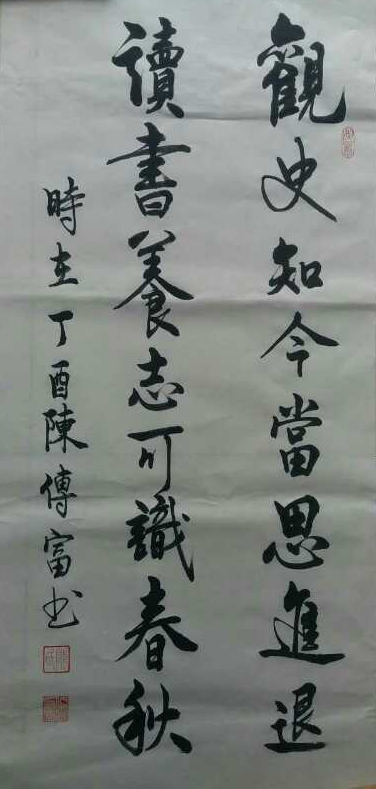 觀史知今當思進退
讀書養志可識春秋
時在丁酉陳傳富书